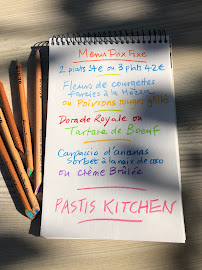 Menu Prix Fixe
2 plats 34€ ou 3 plats 42€
Fleurs de courgettes
farcies à la
ou Poivrons rouges grillés
Dorade Royale ou
Tartare de Boeuf
Carpaccio d'ananas
sorbet à la noix de coco
ou Crème Brûlée
PASTIS KITCHEN